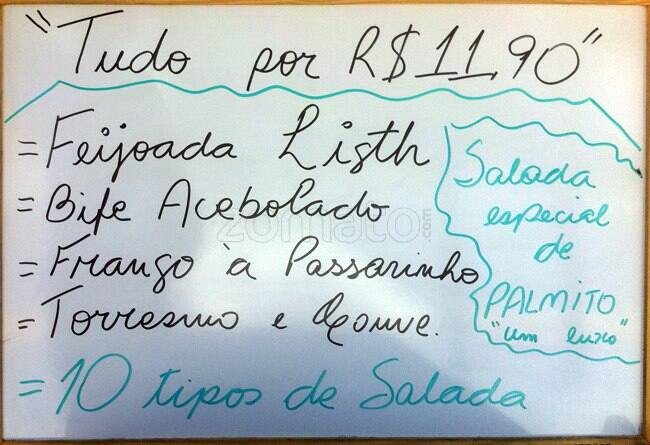 "Tudo por R$ 11,90"
= Feijoada Ligth
= Bife Acebolado
= Frango à Passarinho
= Torresmo e Couve.
= 10 tipos de Salada
Salada
especial
de
PALMITO
"um luxo"
zomato.com